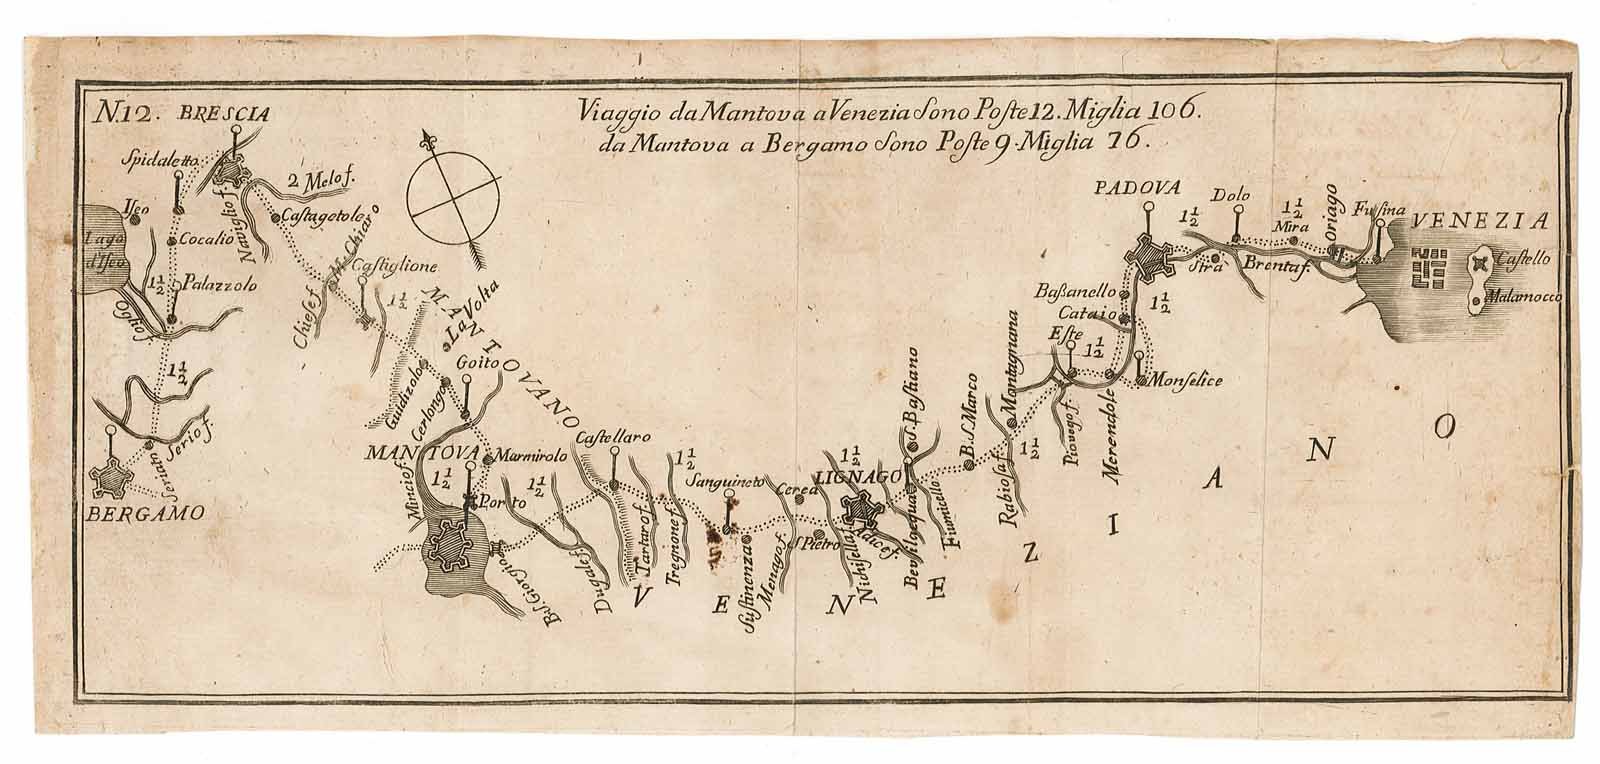 N.12.
Viaggio da Mantova a Venezia sono Poste 12. Miglia 106.
da Mantova a Bergamo sono Poste 9. Miglia 76.
BRESCIA
Spidaletto
2 Melo f.
Iseo
Naviglio f.
Castagetole
Lago
d'Iseo
Cocalio
M. Chiaro
Castiglione
1 1/2
Palazzolo
Chiese f.
1 1/2
La Volta
MANTOVANO
Oglio f.
Goito
1 1/2
Guidizzolo
Cerlongo
Serio f.
Seriato
BERGAMO
MANTOVA
Marmirolo
Castellaro
Mincio f.
1 1/2
Porto
1 1/2
1 1/2
Sanguineto
Cerea
1 1/2
LIGNAGO
S. Bastiano
B. S. Marco
Montagnana
B. S. Giorgio
Dugale f.
Tartaro f.
Tregnone f.
Sustinenza
Menago f.
S. Pietro
Nichisella
Adice f.
Bevilacqua
Fiumicello
Rabiosa f.
1 1/2
Piovego f.
Merendole
Monselice
Este
1 1/2
Cataio
Baßanello
1 1/2
PADOVA
1 1/2
Dolo
1 1/2
Mira
Oriago
Fusina
VENEZIA
Stra
Brenta f.
Castello
Malamocco
VENEZIANO